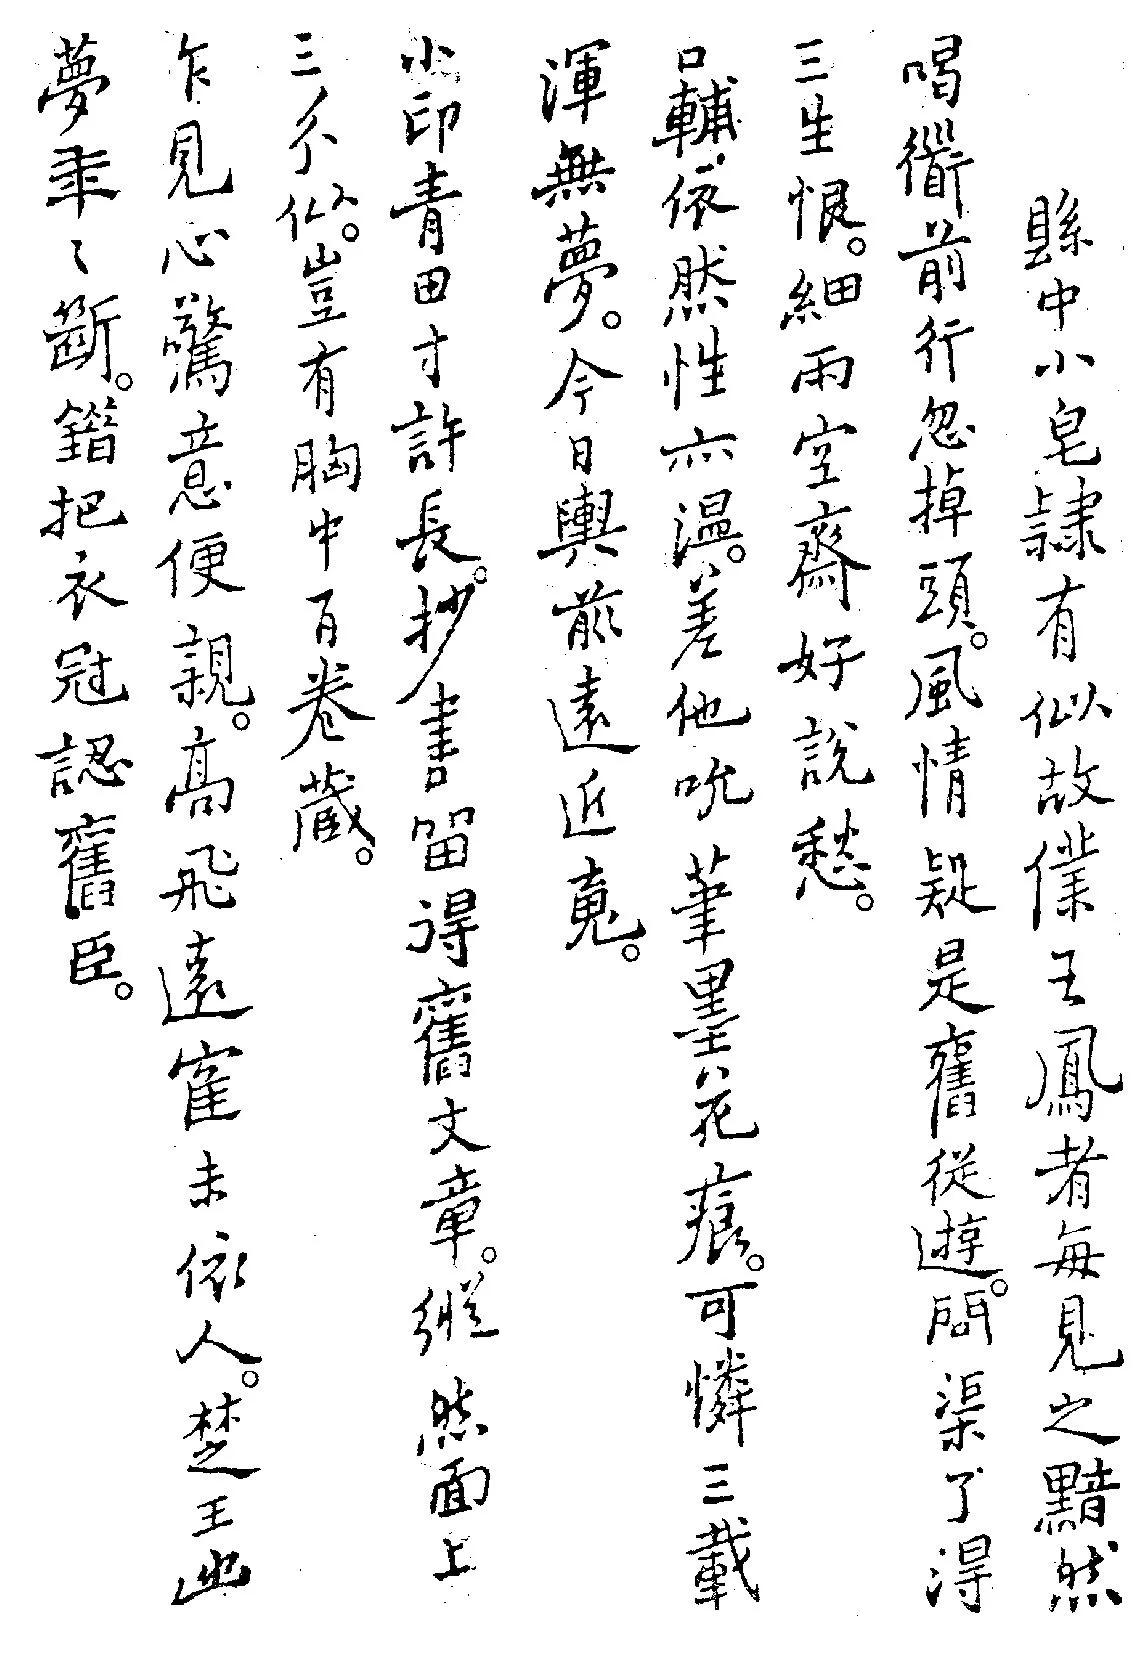 縣中小皂隸有似故僕王鳳者每見之黯然
喝衟前行忽掉頭。風情疑是舊從遊。問渠了得
三生恨。細雨空齋好說愁。
口輔依然性亦溫。差他吮筆墨花痕。可憐三載
渾無夢。今日輿前遠近䰟。
小印青田寸許長。抄書留得舊文章。縱然面上
三分似。豈有胸中百卷藏。
乍見心驚意便親。高飛遠寉未依人。楚王幽
夢年〻斷。錯把衣冠認舊臣。